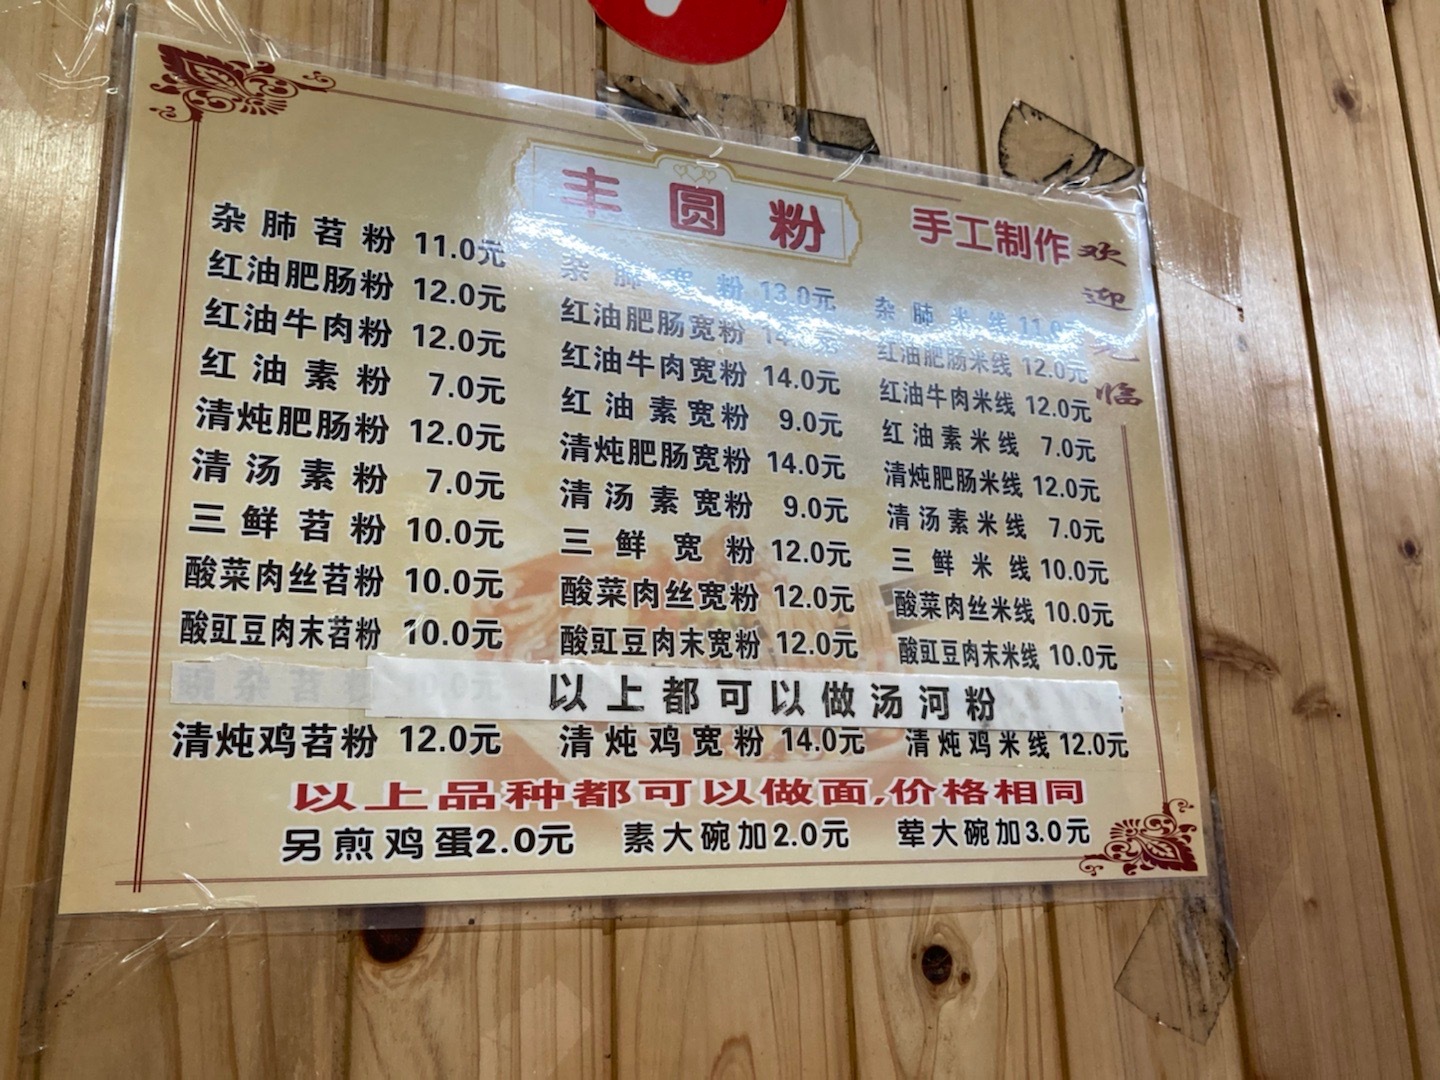 丰圆粉
手工制作
欢迎光临
杂肺苕粉 11.0元
红油肥肠粉 12.0元
红油牛肉粉 12.0元
红油素粉 7.0元
清炖肥肠粉 12.0元
清汤素粉 7.0元
三鲜苕粉 10.0元
酸菜肉丝苕粉 10.0元
酸豇豆肉末苕粉 10.0元
清炖鸡苕粉 12.0元
杂肺宽粉 13.0元
红油肥肠宽粉
红油牛肉宽粉 14.0元
红油素宽粉 9.0元
清炖肥肠宽粉 14.0元
清汤素宽粉 9.0元
三鲜宽粉 12.0元
酸菜肉丝宽粉 12.0元
酸豇豆肉末宽粉 12.0元
清炖鸡宽粉 14.0元
杂肺米线 11.0
红油肥肠米线 12.0元
红油牛肉米线 12.0元
红油素米线 7.0元
清炖肥肠米线 12.0元
清汤素米线 7.0元
三鲜米线 10.0元
酸菜肉丝米线 10.0元
酸豇豆肉末米线 10.0元
清炖鸡米线 12.0元
以上都可以做汤河粉
以上品种都可以做面,价格相同
另煎鸡蛋2.0元 素大碗加2.0元 荤大碗加3.0元